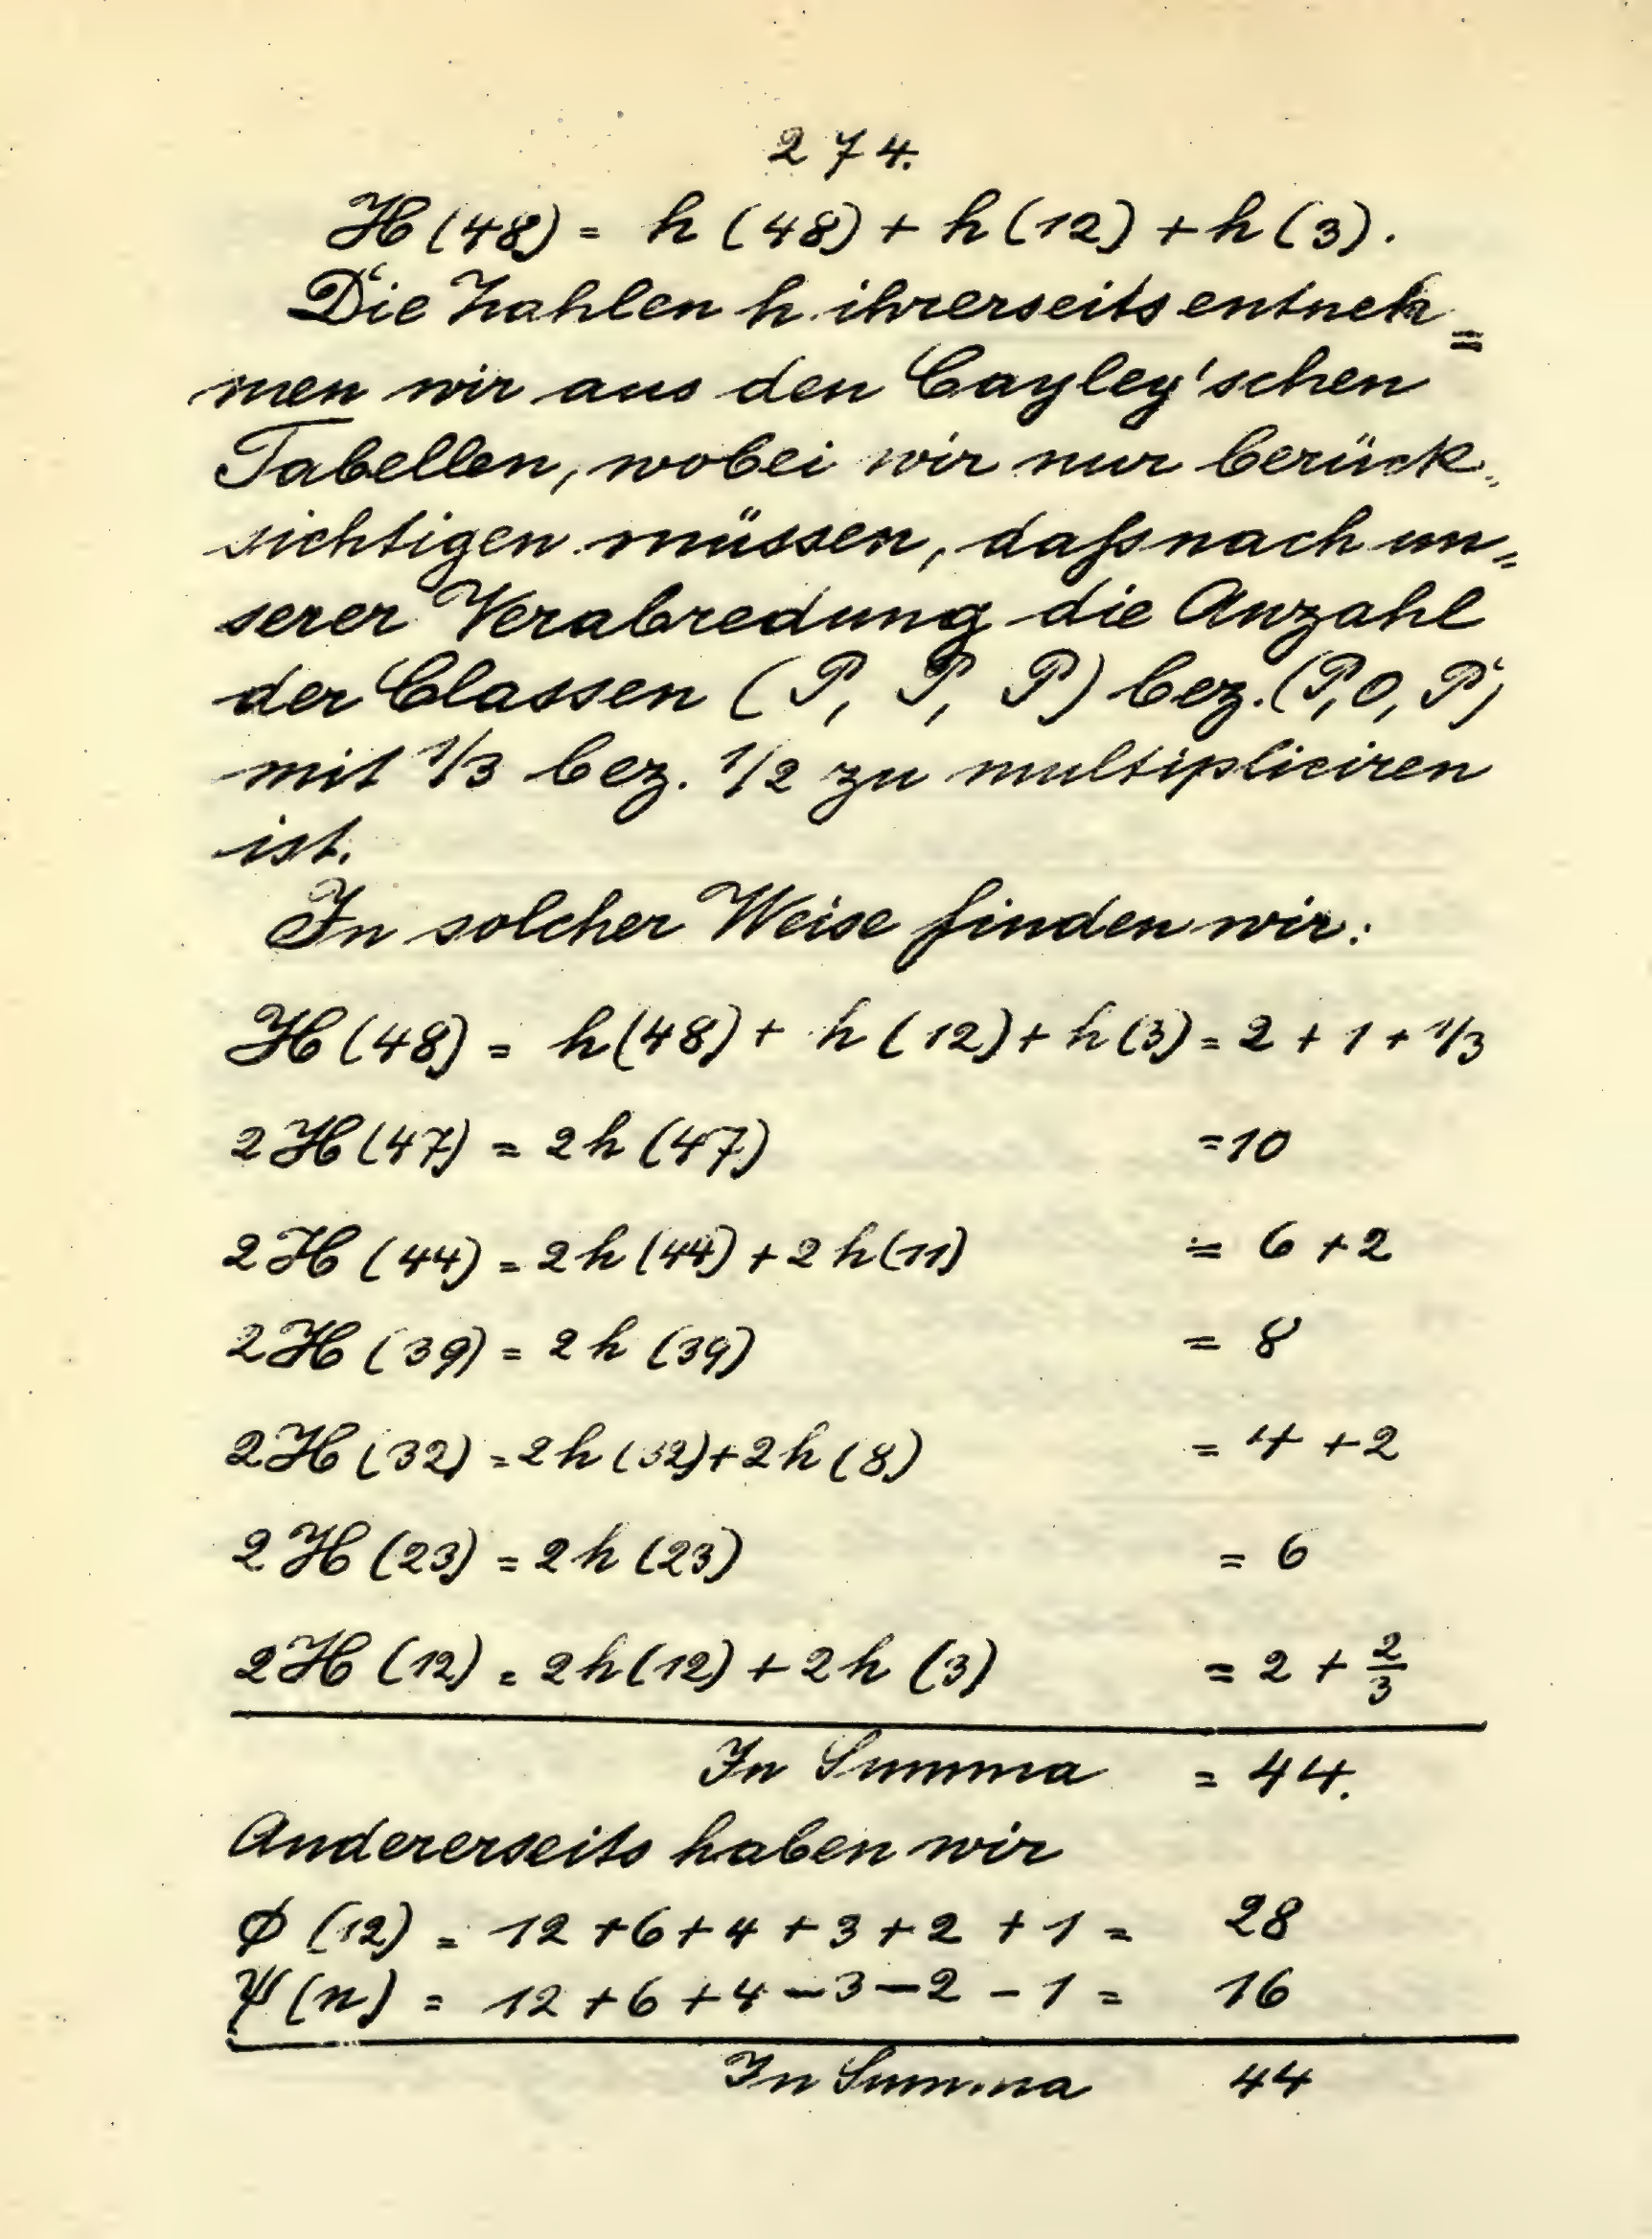 274.
H(48) = h(48) + h(12) + h(3).
Die Zahlen h ihrerseits entneh=
men wir aus den Cayley'schen
Tabellen, wobei wir nur berück-
sichtigen müssen, daß nach un-
serer Verabredung die Anzahl
der Classen (P, P, P) bez. (P, 0, P)
mit 1/3 bez. 1/2 zu multipliciren
ist.
In solcher Weise finden wir:
H(48) = h(48) + h(12) + h(3) = 2 + 1 + 1/3
2H(47) = 2h(47) = 10
2H(44) = 2h(44) + 2h(11) = 6 + 2
2H(39) = 2h(39) = 8
2H(32) = 2h(32) + 2h(8) = 4 + 2
2H(23) = 2h(23) = 6
2H(12) = 2h(12) + 2h(3) = 2 + 2/3
In Summa = 44.
Andererseits haben wir
Φ(12) = 12 + 6 + 4 + 3 + 2 + 1 = 28
Ψ(n) = 12 + 6 + 4 - 3 - 2 - 1 = 16
In Summa 44